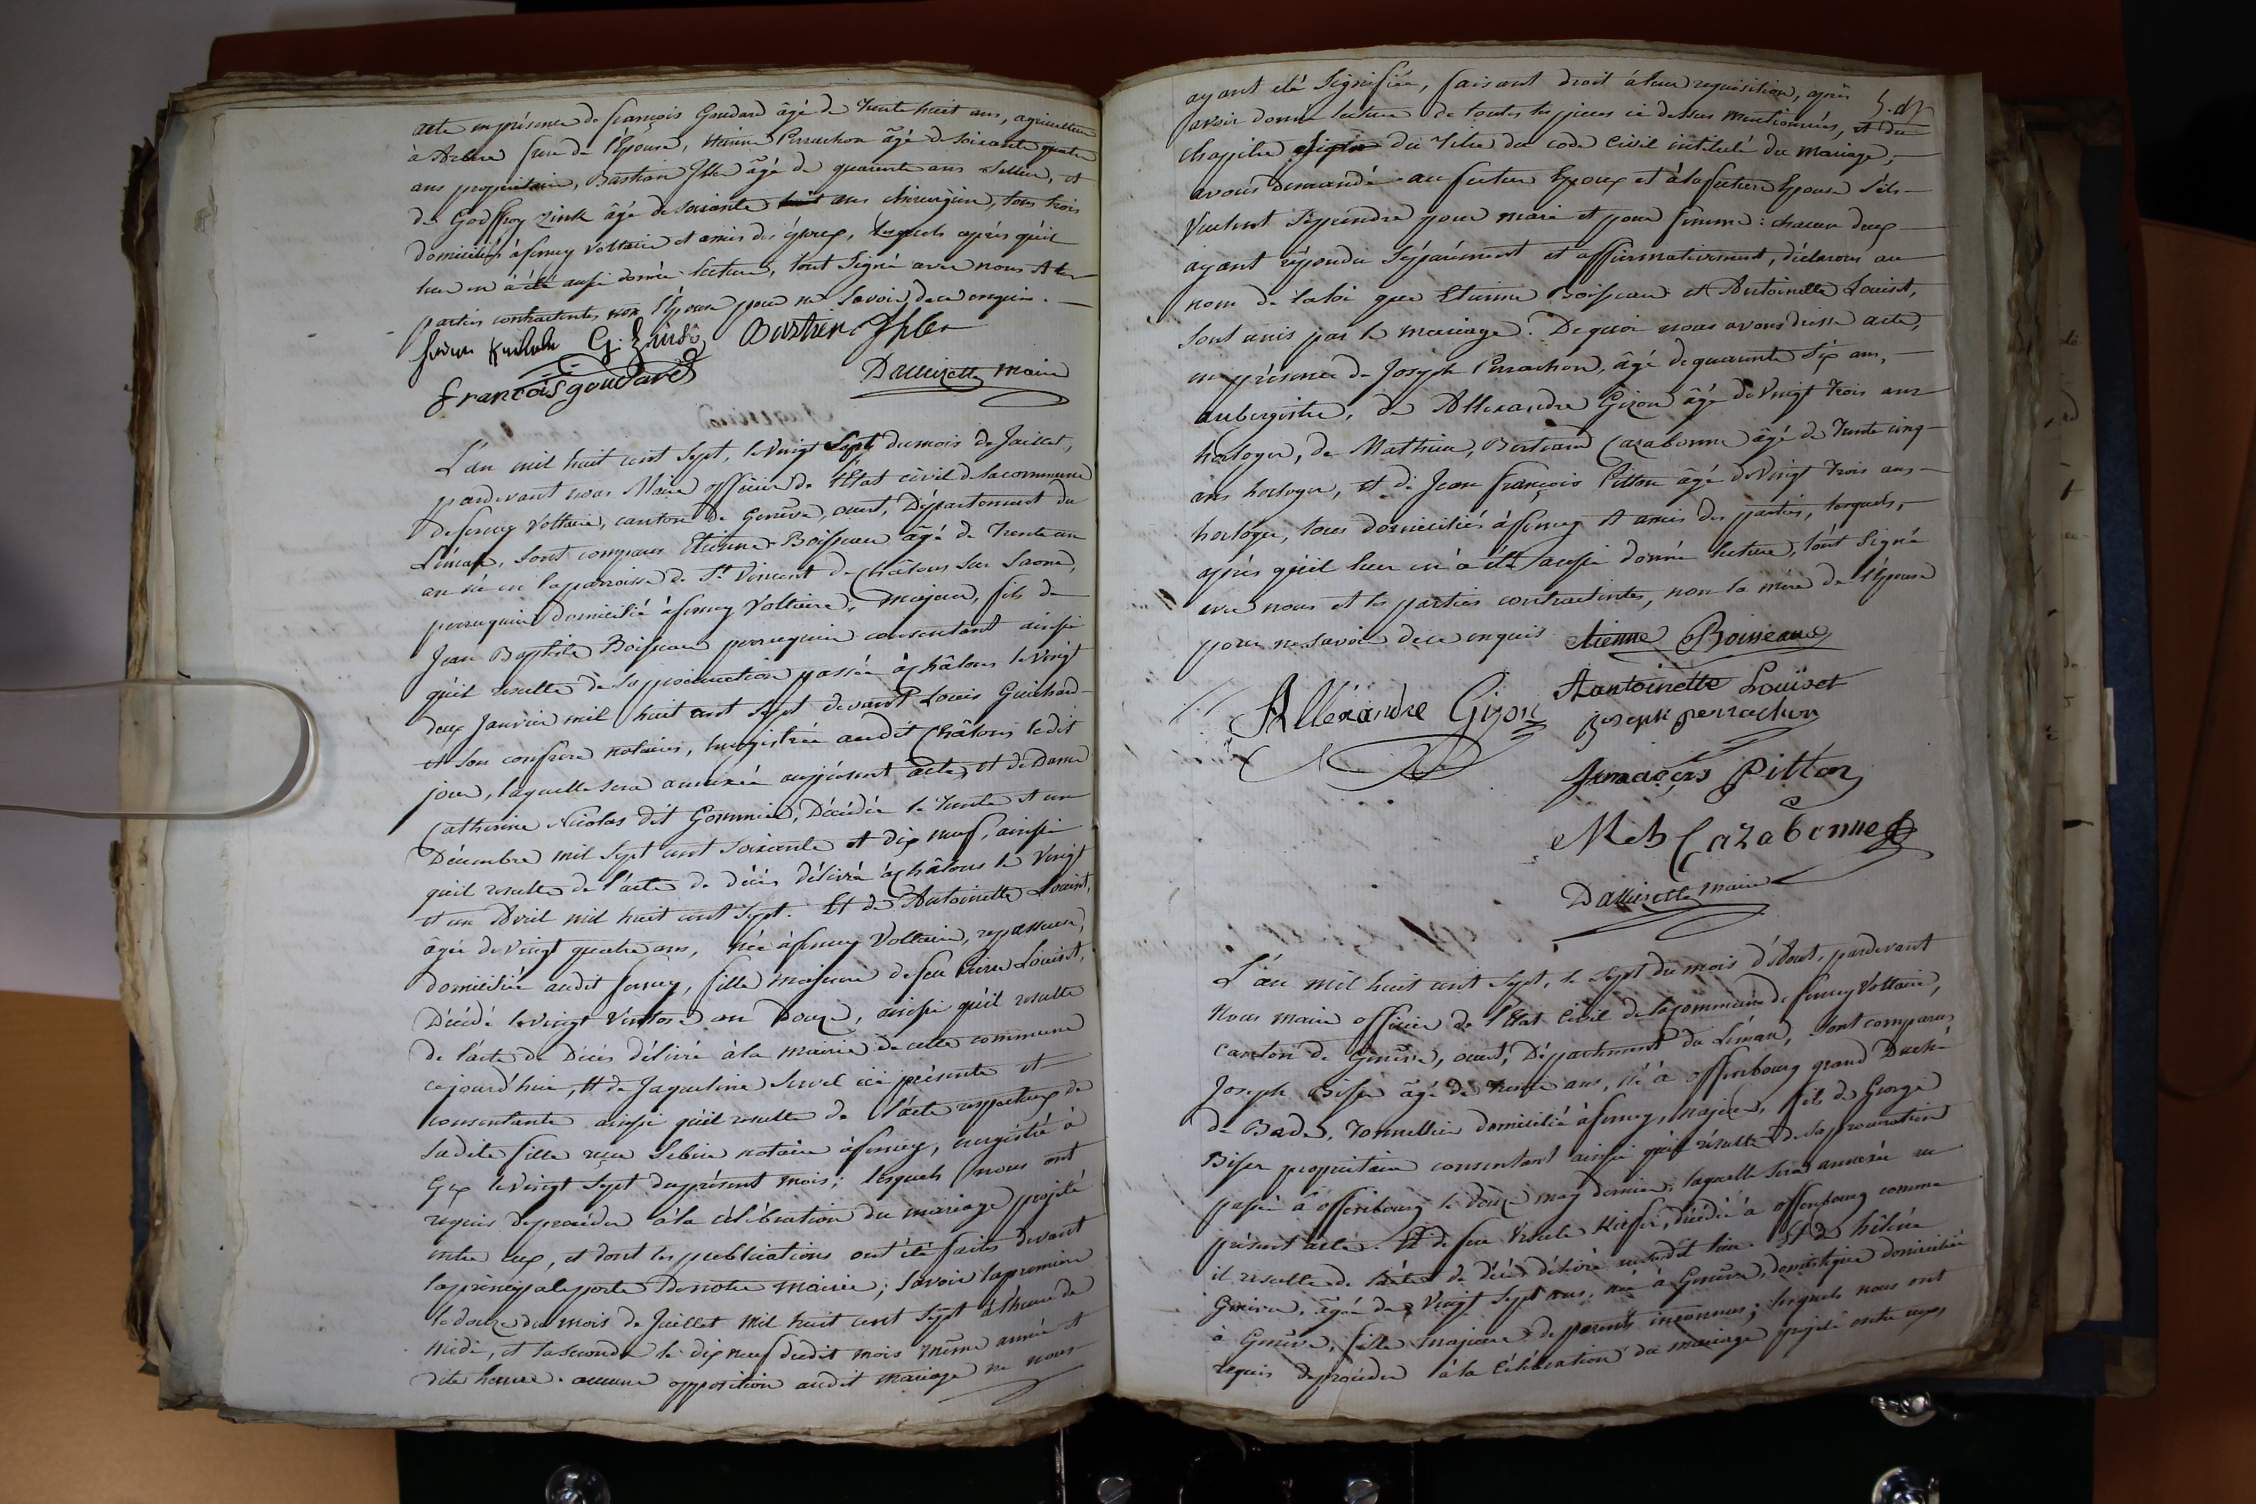 acte en présence de françois Goudard âgé de trente huit ans, agriculteur
à frere de l'Epouse, Etienne Perrachon âgé de soixante quatre
ans propriétaire, Bastian Ihler âgé de quarante ans Sellier, et
de Godffroy Zink âgé de soixante ans chirurgien, tous trois
domiciliés à fernex Voltaire et amis des époux, lesquels après qu'il
leur en a été aussi donné lecture, l'ont signé avec nous et les
parties contractantes non l'Epouse pour ne savoir de ce enquise.
G. Zink Bastien Ihler
françois goudard Dallizette maire
L'an mil huit cent sept, le vingt sept du mois de Juillet,
pardevant nous Maire officier de l'Etat civil de la commune
de ferney Voltaire, canton de Genève, ouest, Département du
Léman, sont comparus Etienne Boisseau âgé de trente un
an né en la parroisse de St Vincent de Châlons sur Saone,
perruquier domicilié à ferney Voltaire, majeur, fils de
Jean Baptiste Boisseau perruquier consentant ainsi
qu'il resulte de sa procuration passée à Châlons le vingt
deux Janvier mil huit cent sept devant Louis Guichard
et son confrere notaires, enregistrée audit Châlons le dit
jour, laquelle sera annexée au présent acte, et de Dame
Catherine Nicolas dit Gommier, Décédée le trente et un
Décembre mil sept cent soixante et dix neuf, ainsi
qu'il resulte de l'acte de décès délivré à Châlons le vingt
et un Avril mil huit cent sept. Et de Antoinette Louiset,
âgée de vingt quatre ans, née à ferney Voltaire, repasseuse,
domiciliée audit ferney, fille majeure de feu Pierre Louiset,
Décédé le vingt Ventose an Douze, ainsi qu'il resulte
de l'acte de Décès délivré à la mairie de cette commune
cejourd'hui, et de Jaqueline Servel ici présente et
consentante ainsi qu'il resulte de l'acte respectueux de
sa dite fille reçu notaire à ferney, enregistré à
Gex le vingt sept du présent mois; lesquels nous ont
requis de procéder à la célébration du mariage projeté
entre eux, et dont les publications ont été faites devant
la principale porte de notre mairie; savoir la premiere
le douze du mois de Juillet mil huit cent sept à l'heure de
midi, et la seconde le dix neuf dudit mois même année et
dite heure. aucune opposition audit mariage ne nous
ayant été signifiée, faisant droit à leur requisition, après
avoir donné lecture de toutes les pieces ci dessus mentionnées, et du
chapitre du titre du code Civil intitulé du mariage,
avons demandé au futur Epoux et à la future Epouse s'ils
veulent se prendre pour mari et pour femme: chacun d'eux
ayant répondu séparément et affirmativement, déclarons au
nom de la loi que Etienne Boisseau et Antoinette Louiset,
sont unis par le mariage. De quoi nous avons dressé acte,
en présence de Joseph Perrachon, âgé de quarante six ans,
aubergiste, de Allexandre Gizon âgé de vingt trois ans
horloger, de Mathieu, Bertrand Cazabonne âgé de trente cinq
ans horloger, et de Jean françois Pitton âgé de vingt trois ans
horloger, tous domiciliés à ferney et amis des parties, lesquels,
après qu'il leur en a été aussi donné lecture, l'ont signé
avec nous et les parties contractantes, non la mère de l'épouse
pour ne savoir de ce enquise Etienne Boisseau
Antoinette Louiset
Alléxandre Gizon joseph perrachon
Pitton
M B Cazabonne
Dallizette maire
L'an mil huit cent sept, le sept du mois d'Aout, pardevant
Nous maire officier de l'Etat Civil de la commune de ferney Voltaire,
canton de Genève, ouest, Département du Léman, sont comparus
Joseph Biser âgé de trente ans, né à offenbourg grand Duché
de Bade, tonnellier domicilié à ferney, majeur, fils de George
Biser propriétaire consentant ainsi qu'il résulte de sa procuration
passée à offenbourg le douze may dernier, laquelle sera annexée au
présent acte. Et de feue Ursule Kieffer, décédée à offenbourg comme
il resulte de l'acte de décès délivré audit lieu. Et de hélène
âgée de vingt sept ans, née à Genève, domestique domiciliée
à Genève, fille majeure de parents inconnus; lesquels nous ont
requis de procéder à la Célébration du mariage projeté entre eux,